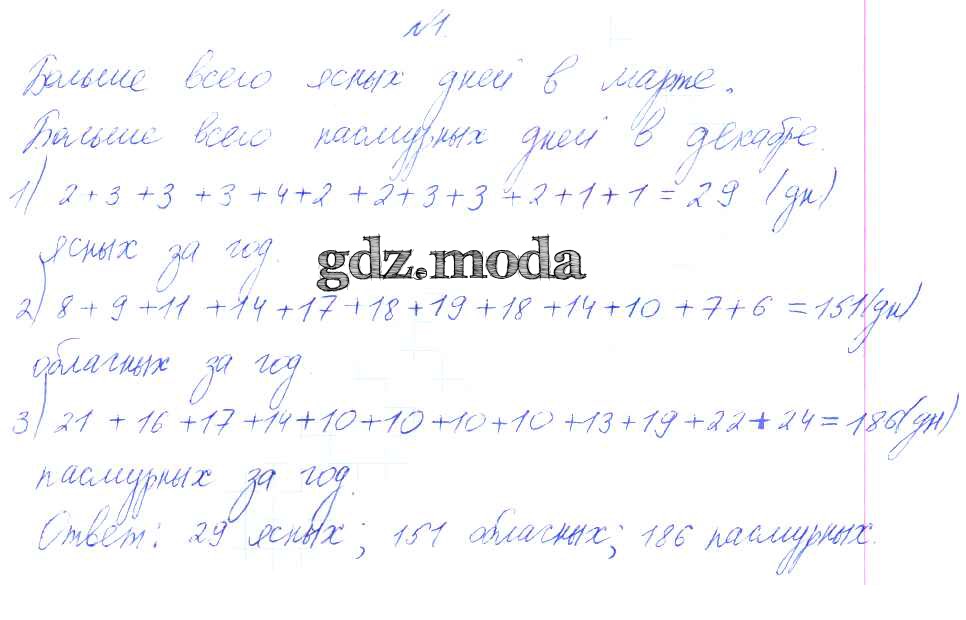 №1.
Больше всего ясных дней в марте.
Больше всего пасмурных дней в декабре.
1) 2+3+3+3+4+2+2+3+3+2+1+1=29 (дн)
ясных за год.
gdz.moda
2) 8+9+11+14+17+18+19+18+14+10+7+6=151(дн)
облачных за год.
3) 21+16+17+14+10+10+10+10+13+19+22+24=186(дн)
пасмурных за год.
Ответ: 29 ясных; 151 облачных; 186 пасмурных.